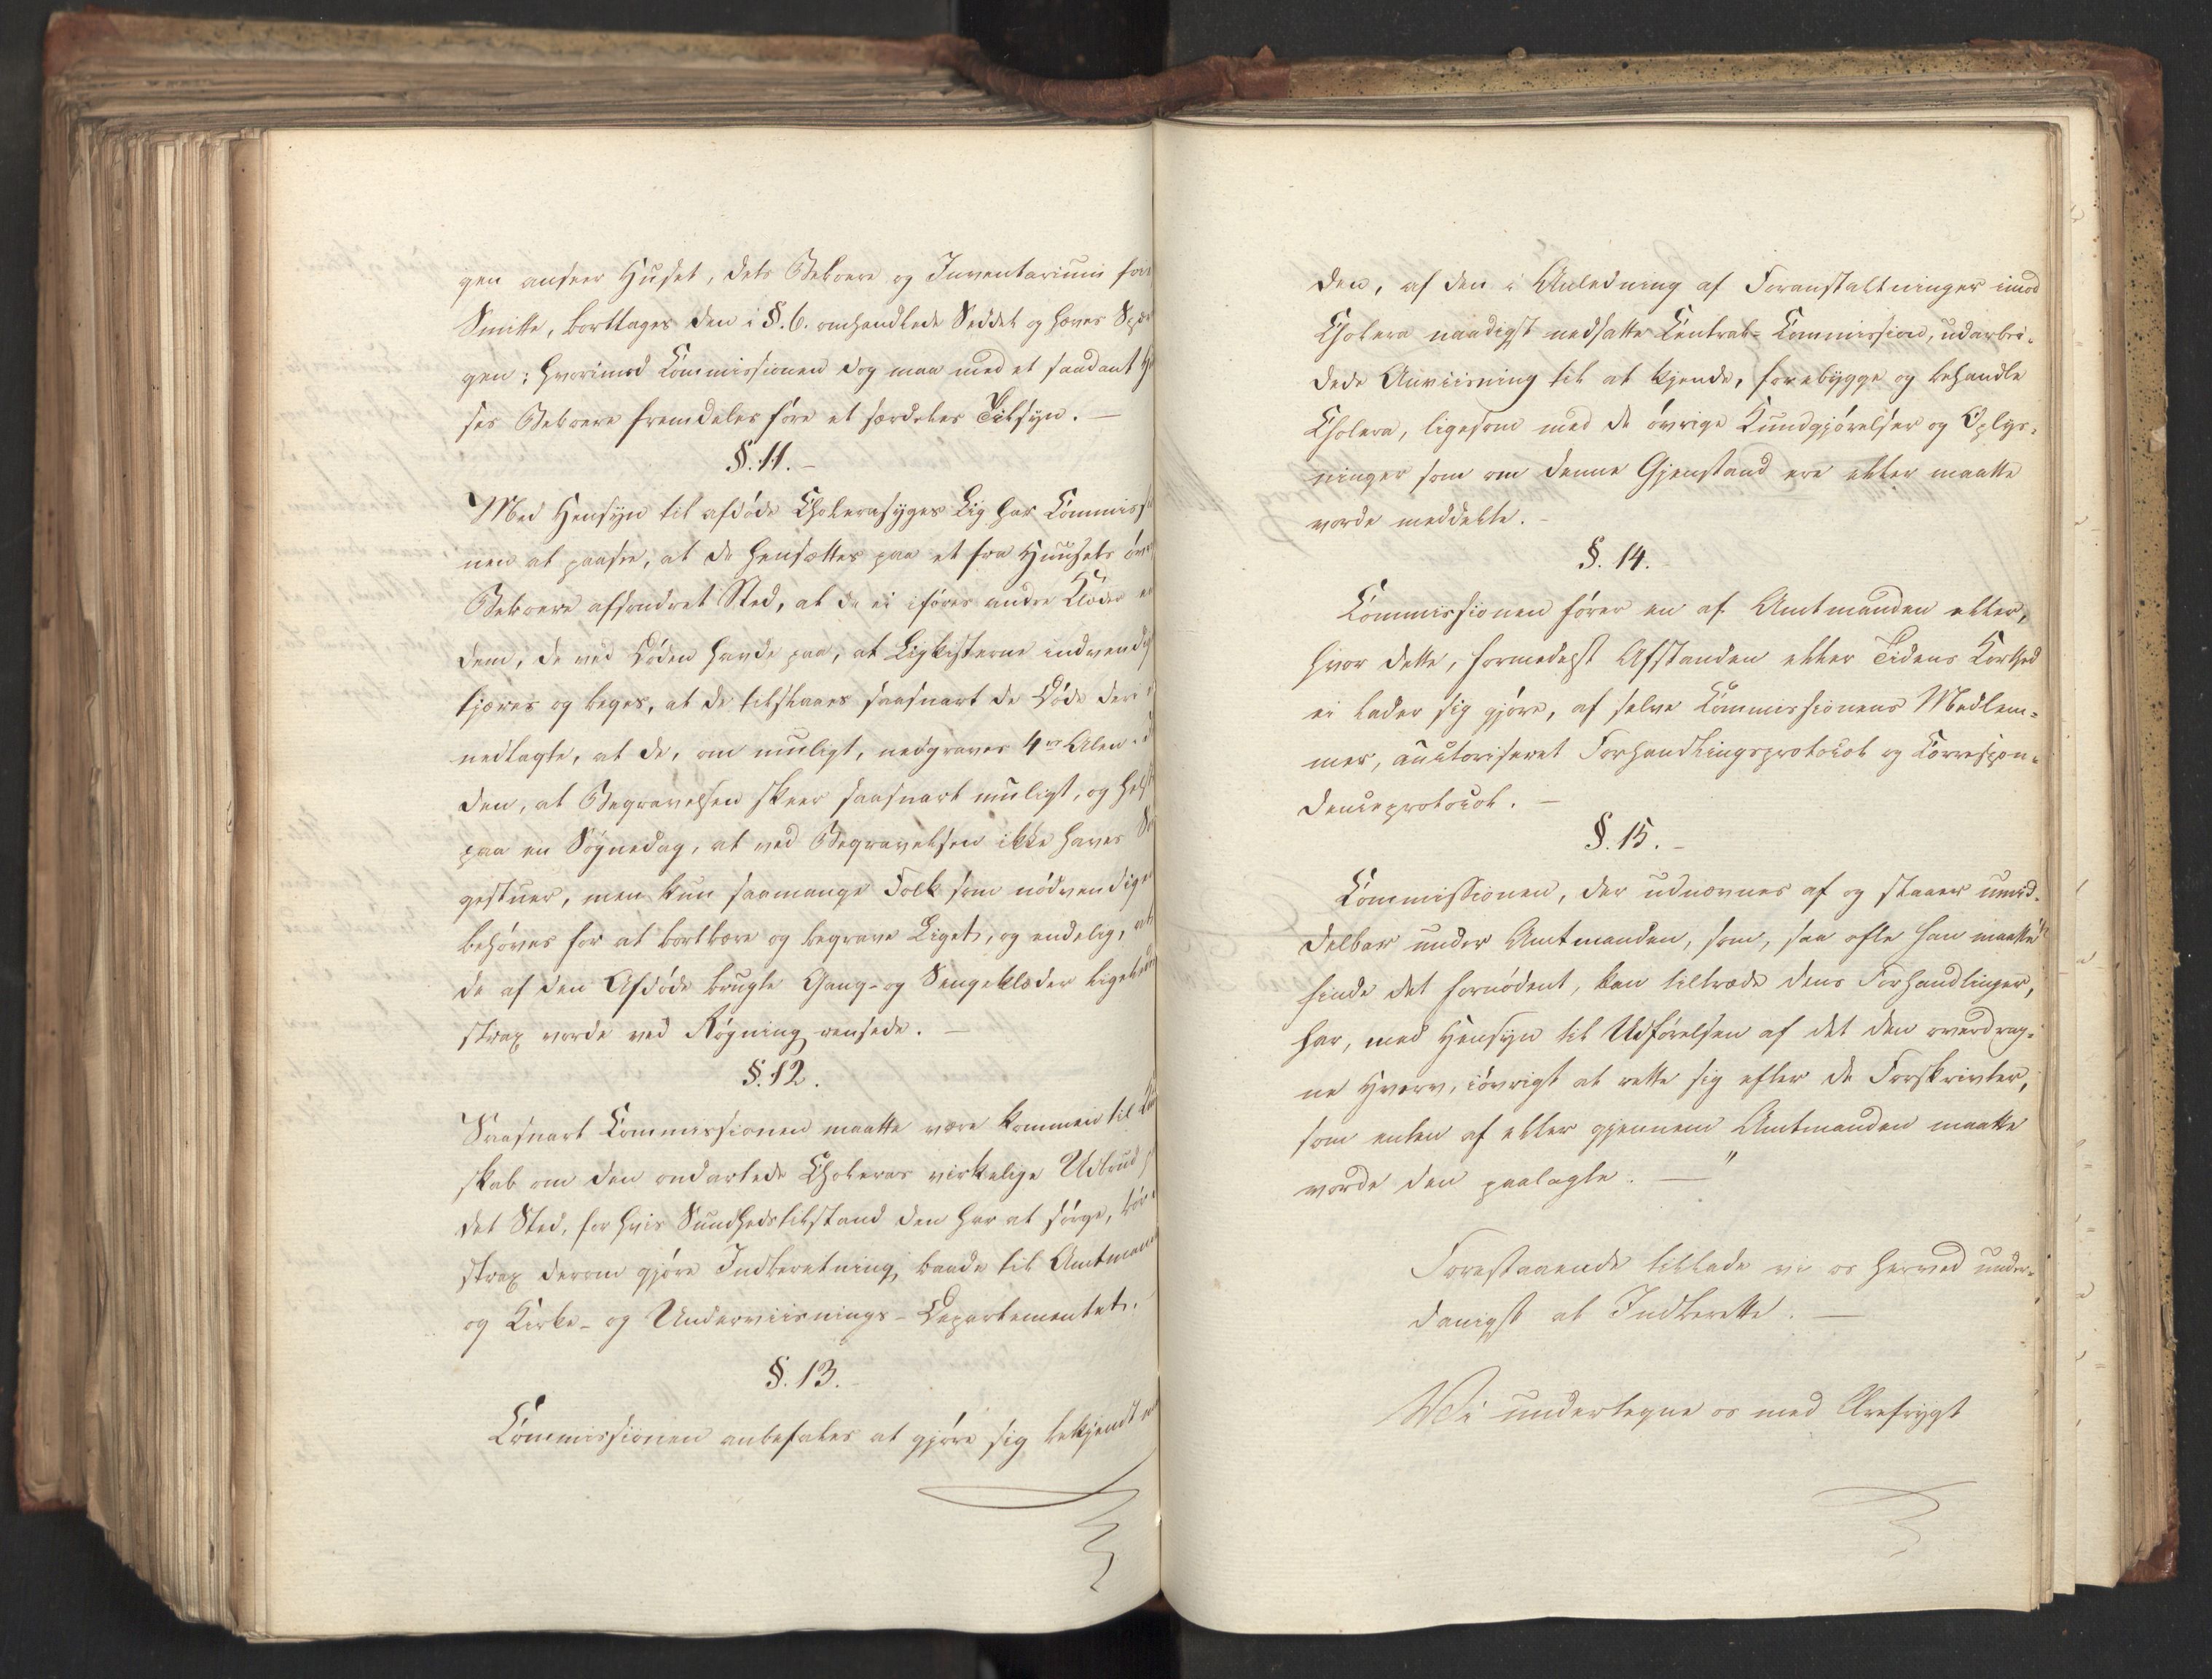 gen anseer Huset, dets Beboere og Inventarium for
Smitte, borttages den i §. 6. omhandlede Seddel og hæves Spær
gen; hvorimod Commissionen dog maa med et saadant Hu
ses Beboere fremdeles føre et særdeles Tilsyn. —
§. 11. –
Med Hensyn til afdøde Cholerasyges Lig har Commissio
nen at paasee, at de hensættes paa et fra Huusets øvr
Beboere afsondret Sted, at de ei iføres andre Klæder en
dem, de ved Døden havde paa, at Ligkisterne indvendig
tjæres og beges, at de tilslaaes saasnart de Døde deri
nedlagte, at de, om muligt, nedgraves 4re Alen i
den, at Begravelsen skeer saasnart muligt, og helst
paa en Søgnedag, at ved Begravelsen ikke haves
gestuer, men kun saamange Folk som nødvendigen
behøves for at bortbære og begrave Liget, og endelig, at
de af den Afdøde brugte Gang- og Sengeklæder
strax vorde ved Røgning rensede. —
§. 12.
Saasnart Commissionen maatte være kommen til
skab om den ondartede Choleras virkelige Udbrud
det Sted, for hvis Sundhedstilstand den har at sørge, bør
strax derom gjøre Indberetning, baade til Amtmand
og Kirke- og Underviisnings-Departementet.
§. 13. –
Commissionen anbefales at gjøre sig bekjendt
den, af den i Anledning af Foranstaltninger imod
Cholera naadigst nedsatte Central-Commission, udarbei-
dede Anviisning til at kjende, forebygge og behandle
Cholera, ligesom med de øvrige Kundgjørelser og Oplys-
ninger som om denne Gjenstand ere eller maatte
vorde meddeelte. –
§. 14.
Commissionen fører en af Amtmanden eller,
hvor dette, formedelst Afstanden eller Tidens Korthed
ei lader sig gjøre, af selve Commissionens Medlem-
mer, auctoriseret Forhandlingsprotocol og Correspon-
denceprotocol. —
§. 15. –
Commissionen, der udnævnes af og staaer umid-
delbar under Amtmanden, som, saa ofte han maatte
finde det fornødent, kan tiltræde dens Forhandlinger,
har, med Hensyn til Udførelsen af det den overdrag-
ne Hverv, iøvrigt at rette sig efter de Forskrivter,
som enten af eller gjennem Amtmanden maatte
vorde den paalagte. — "
Forestaaende tillade vi os herved under-
danigst at Indberette. —
Vi undertegne os med Ærefrygt